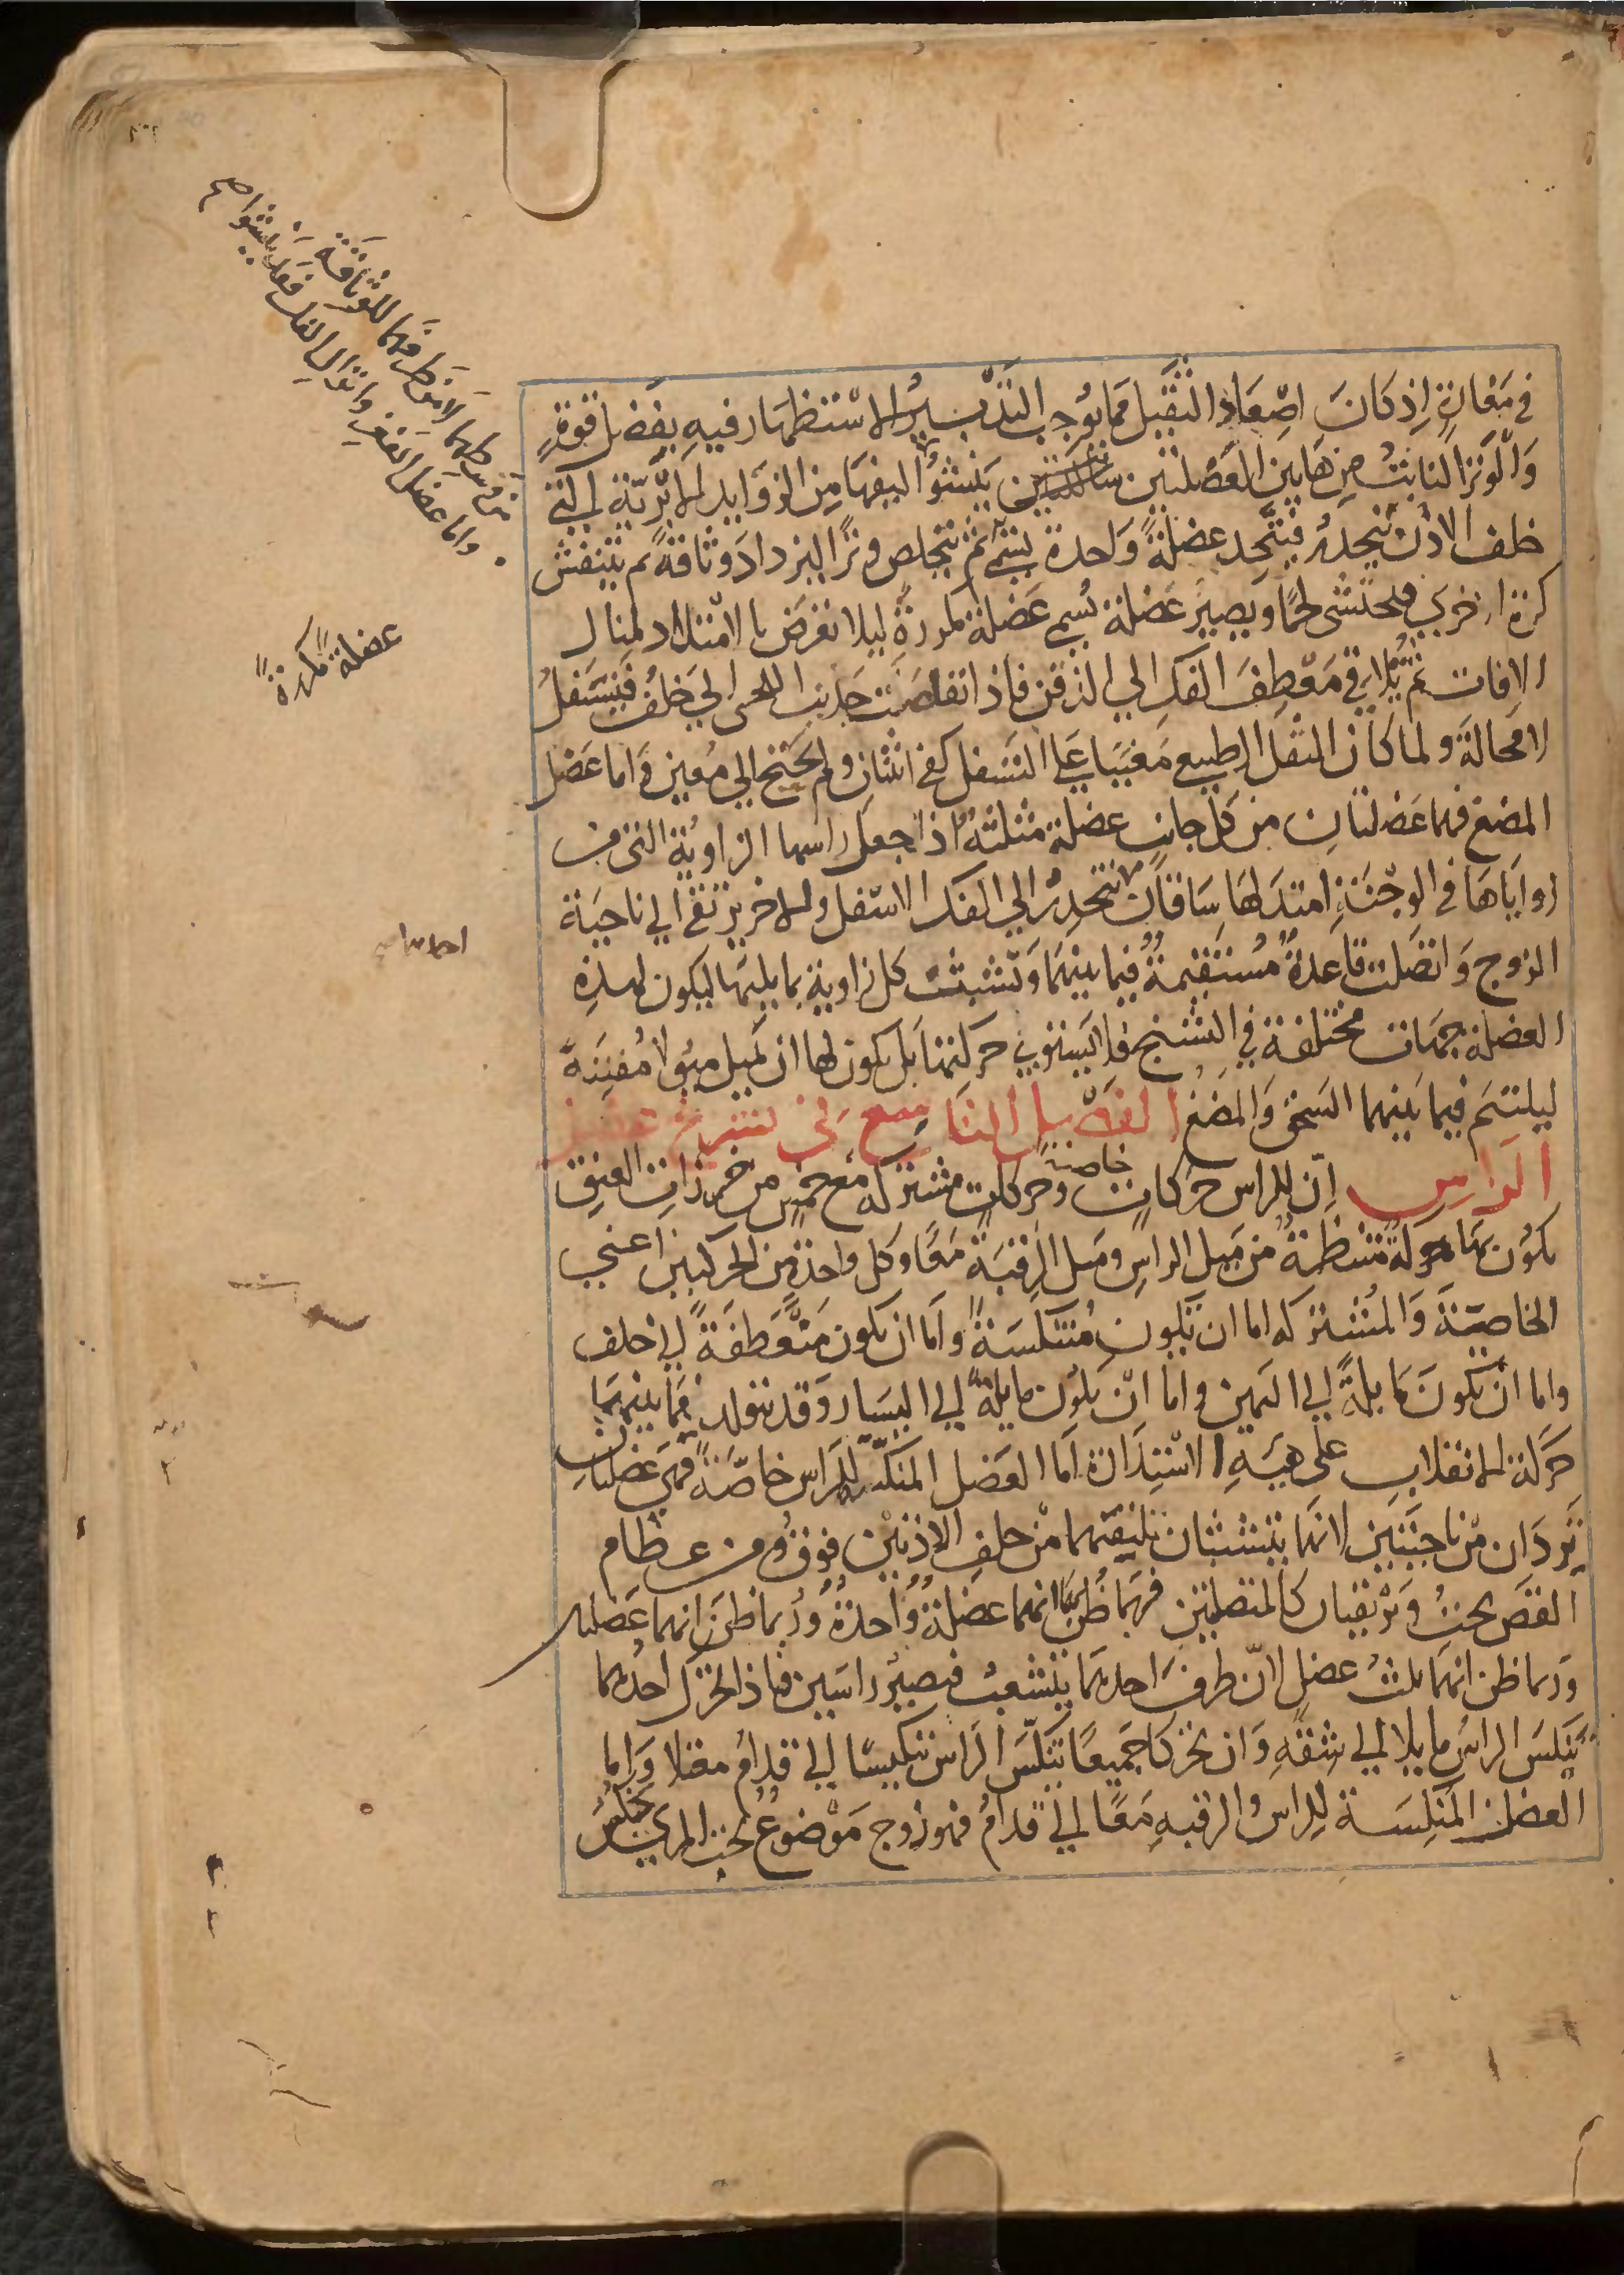 في مغارة اذ كان اصعاد الثقيل مما يوجب التدبير الاستظهار فيه بفضل قوة
والوتر النابت من هاتين العضلتين ينشو اليفها من الزوايد الابرية التي
خلف الاذن وينحدر فيتحد عضلة واحدة ثم يتخلص وترا ليزداد وثاقة ثم يتنفش
كرة اخري فيحتشى لحما ويصير عضلة تسمي عضلة مكررة ليلا تعرض بالامتداد لمنال
الافات ثم تلاقي معطف الفك الي الذقن فاذا تقلصت جذبت اللحي الي خلف فيتسفل
لا محالة ولما كان الثقل الطبيعي معينا علي التسفل كفي اثنان ولم يحتج الي معين واما عضل
المضغ فهما عضلتان من كل جانب عضلة مثلثة اذا جعل راسها الزاوية التي من
زواياها في الوجنة امتد لها ساقان ينحدر الي الفك الاسفل والاخر يرتقي الي ناحية
الزوج واتصلت قاعدة مستقيمة فيما بينهما وتشبثت كل زاوية بما يليها ليكون لهذه
العضلة جهات مختلفة في التشنج فلا يستوي حركتها بل يكون لها ان تميل ميولا مفننة
ليلتم فيما بينهما السحق والمضغ الفصل التاسع في تشريح عضل
الراس ان للراس حركات خاصة وحركات مشتركة مع خمس من خرزات العنق
يكون بها حركة منتظمة من ميل الراس وميل الرقبة معا وكل واحدة من الحركتين اعني
الخاصة والمشتركه اما ان تكون متنكسة واما ان يكون منعطفة الي خلف
واما ان تكون مايلة الي اليمين واما ان يكون مايلة الي اليسار وقد يتولد فيما بينهما
حركة الانقلاب علي هيئة الاستدارة اما العضل المنكسه للراس خاصة فهي عضلتان
تردان من ناحيتين لانهما يتشبثان بليفهما من خلف الاذنين فوق ومن عظام
القص تحت ويرتقيان كالمتصلتين فربما ظن انهما عضلة واحدة وربما ظن انهما عضلتان
وربما ظن انهما ثلث عضل لان طرف احدهما يتشعب فيصير راسين فاذا تحرك احدهما
تنكس الراس مايلا الي شقه وان تحركا جميعا تنكس الراس تنكيسا الي قدام معتدلا واما
العضل المنكسة للراس والرقبه معا الي قدام فهو زوج موضوع تحت المري
واما عضل الفغر وانزال الفك فقد ينشوا
عضلة مكررة